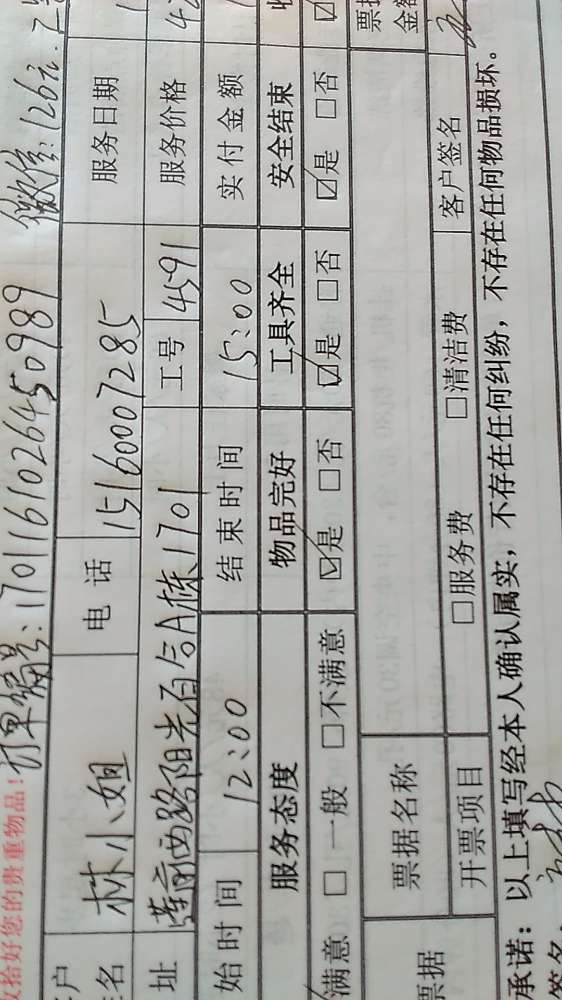 拾好您的贵重物品！ 订单编号：17011610264450989 微信：126元
林小姐 电话 15160007285 服务日期
址 莲前西路阳光百合A栋1701 工号 4591 服务价格
始时间 12:00 结束时间 15:00 实付金额
服务态度 物品完好 工具齐全 安全结束
满意 □一般 □不满意 ☑是 □否 ☑是 □否 ☑是 □否
票据名称 票据金额
票据 开票项目 □服务费 □清洁费 客户签名
承诺：以上填写经本人确认属实，不存在任何纠纷，不存在任何物品损坏。
签名：